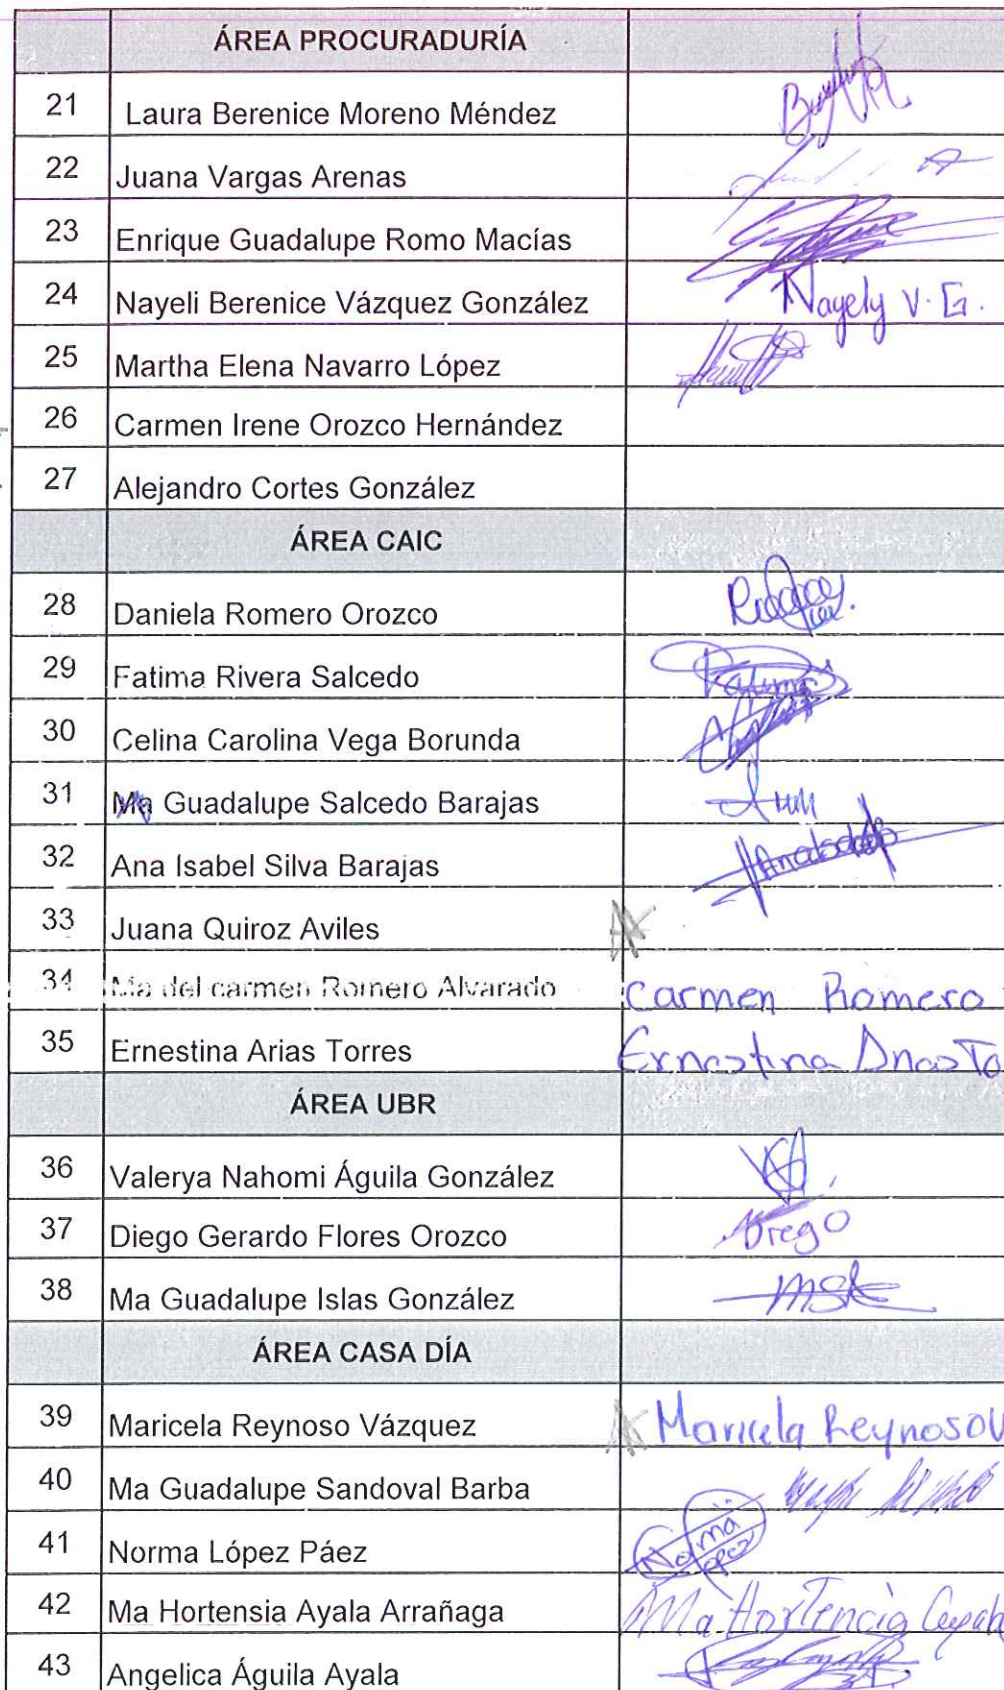 ÁREA PROCURADURÍA
21 Laura Berenice Moreno Méndez
22 Juana Vargas Arenas
23 Enrique Guadalupe Romo Macías
24 Nayeli Berenice Vázquez González Nayely V. G.
25 Martha Elena Navarro López
26 Carmen Irene Orozco Hernández
27 Alejandro Cortes González
ÁREA CAIC
28 Daniela Romero Orozco
29 Fatima Rivera Salcedo Fatima
30 Celina Carolina Vega Borunda
31 Ma Guadalupe Salcedo Barajas
32 Ana Isabel Silva Barajas
33 Juana Quiroz Aviles
34 Ma del carmen Romero Alvarado Carmen Romero
35 Ernestina Arias Torres Ernestina
ÁREA UBR
36 Valerya Nahomi Águila González
37 Diego Gerardo Flores Orozco Diego
38 Ma Guadalupe Islas González
ÁREA CASA DÍA
39 Maricela Reynoso Vázquez Maricela Reynoso V
40 Ma Guadalupe Sandoval Barba
41 Norma López Páez Norma López
42 Ma Hortensia Ayala Arrañaga Ma Hortencia
43 Angelica Águila Ayala